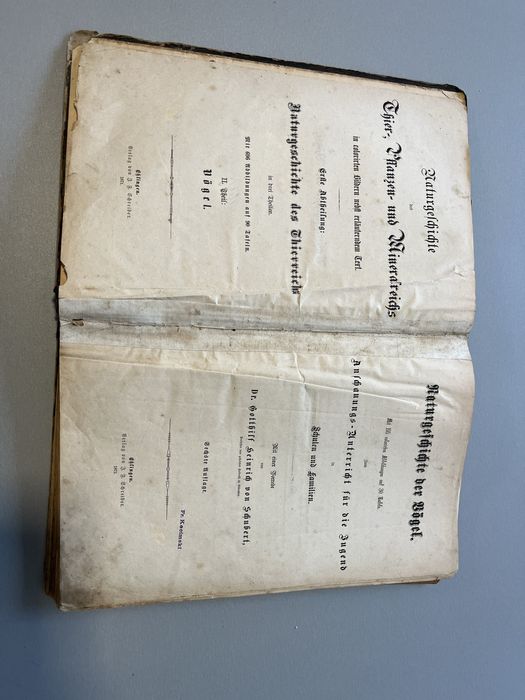 Naturgeschichte
des
Thier-, Pflanzen- und Mineralreichs
in colorirten Bildern nebst erläuterndem Text.
Erste Abtheilung:
Naturgeschichte des Thierreichs
in drei Theilen.
Mit 606 Abbildungen auf 90 Tafeln.
II. Theil:
Vögel.
Eßlingen.
Verlag von J. F. Schreiber.
Naturgeschichte der Vögel.
Mit colorirten Abbildungen auf 30 Tafeln.
Zum
Anschauungs-Unterricht für die Jugend
in
Schulen und Familien.
Mit einer Vorrede
von
Dr. Gotthilf Heinrich von Schubert,
Sechste Auflage.
Eßlingen.
Verlag von J. F. Schreiber.